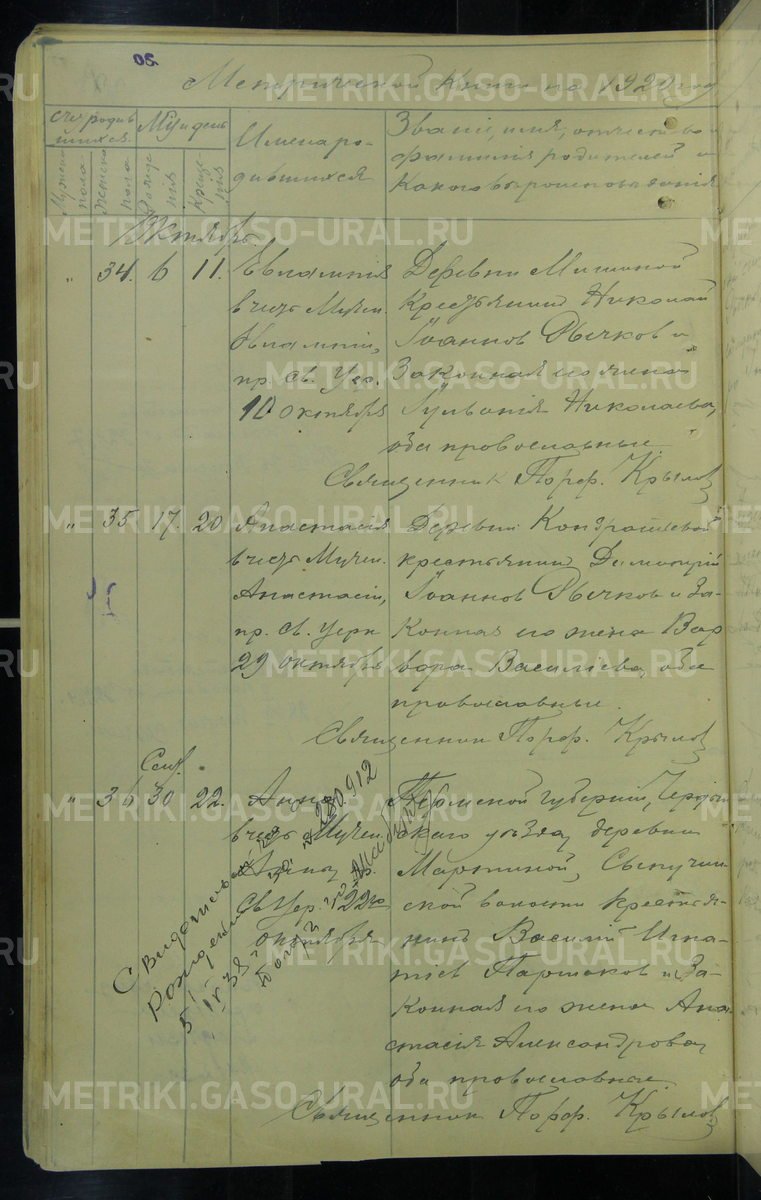 Метрической книги на 1920 год
Счет родив
шихся.
Мужеска
пола
Женска
пола
М-ц и день
Рожде
ния
Креще
ния
Имена ро-
дившихся
Звание, имя, отчество и
фамилия родителей и
какого вероисповедания
Октябрь
" 34. 6 11.
Евлампия
в честь Мучен.
Евлампии,
пр. св. Цер.
10 октября
Деревни
Крестьянин Николай
Иоаннов Бычков и
Законная его жена
Иулиания Николаева,
оба православные.
Священник Порф. Крылов
" 35 17. 20
Анастасия
в честь Мучен.
Анастасии,
пр. св. Церк
29 октября
Деревни Кондрашевой
крестьянин Димитрий
Иоаннов Бычков и За-
конная его жена Вар
вара Васильева, оба
православные.
Священник Порф. Крылов
Сент.
" 36 30 22.
Анна
в честь Мучен.
Анны, пр.
Св. Цер. 22го
октября
Пермской губернии,
скаго уезда, деревни
Мартиной,
ской волости крестья-
нин Василий Игна-
тиев Паршаков и За-
конная его жена Ана
стасия Александрова,
оба православные.
Священник Порф. Крылов
Свидетельст
Рожден
5 IV 38
METRIKI.GASO-URAL.RU